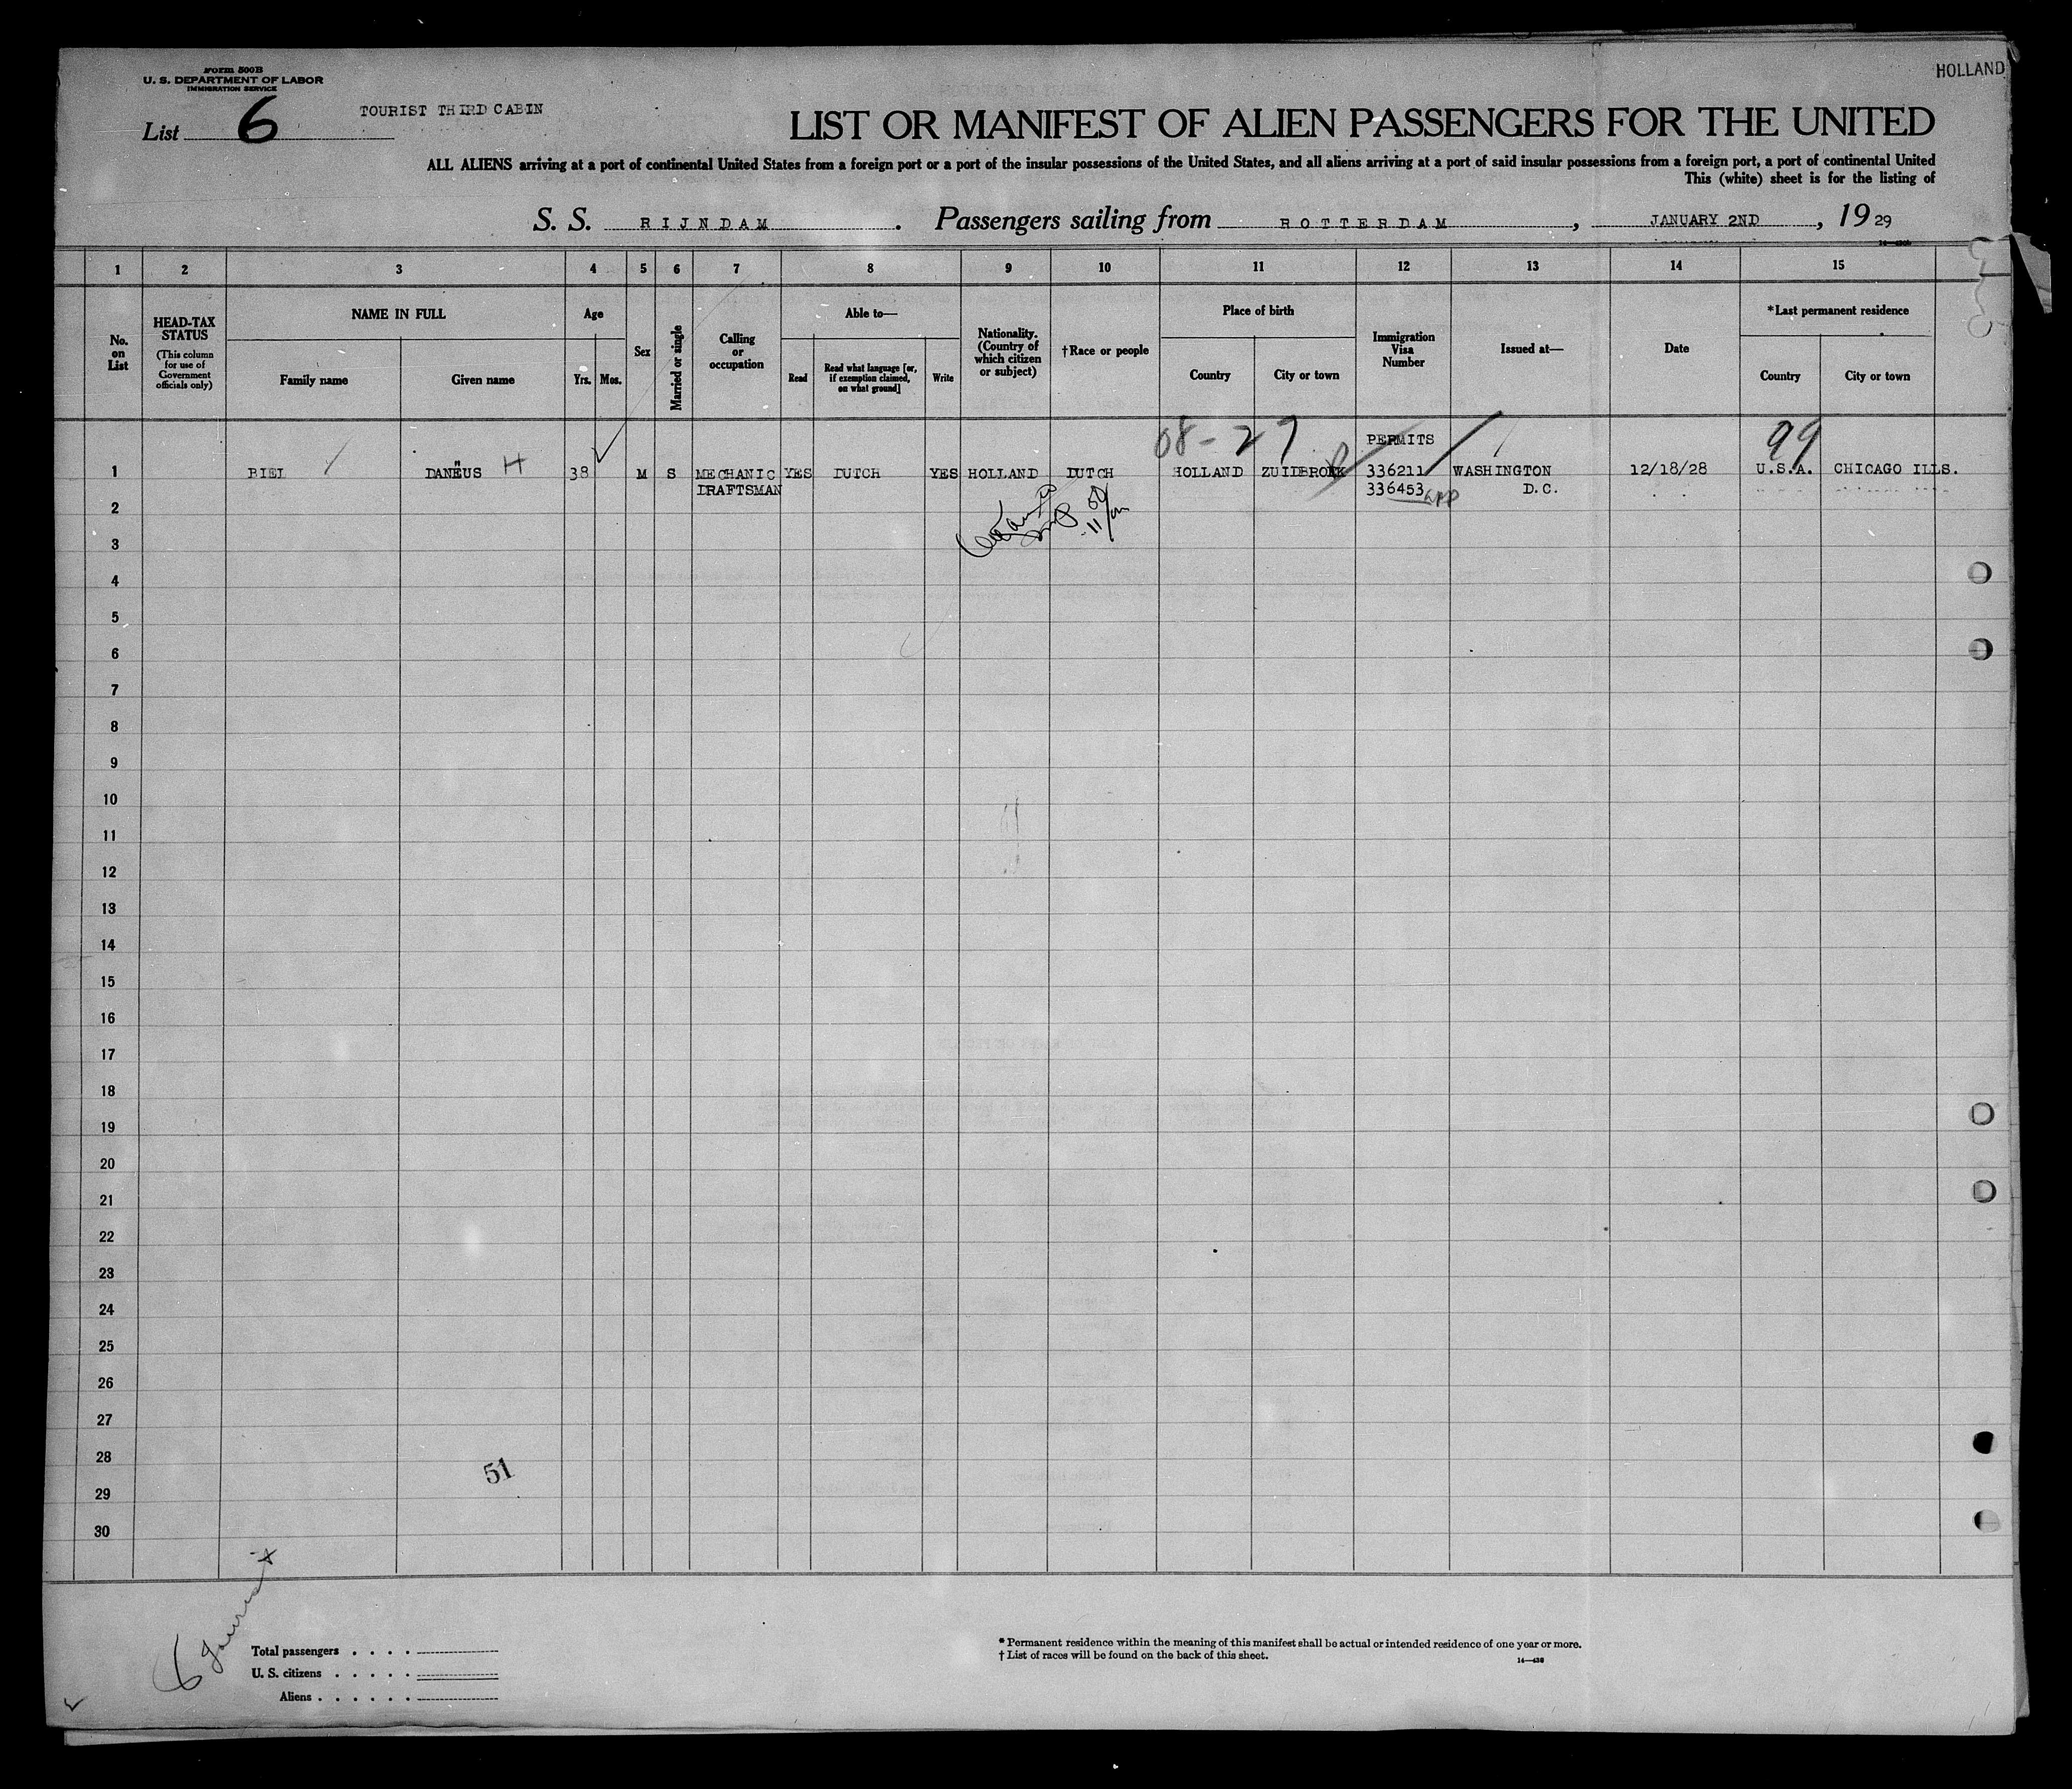 HOLLAND
Form 500B
U. S. DEPARTMENT OF LABOR
IMMIGRATION SERVICE
List 6
TOURIST THIRD CABIN
LIST OR MANIFEST OF ALIEN PASSENGERS FOR THE UNITED
ALL ALIENS arriving at a port of continental United States from a foreign port or a port of the insular possessions of the United States, and all aliens arriving at a port of said insular possessions from a foreign port, a port of continental United
This (white) sheet is for the listing of
S. S. RIJNDAM. Passengers sailing from ROTTERDAM, JANUARY 2ND, 1929
1 2 3 4 5 6 7 8 9 10 11 12 13 14 15
No. on List
HEAD-TAX STATUS
(This column for use of Government officials only)
NAME IN FULL
Family name
Given name
Age
Yrs.
Mos.
Sex
Married or single
Calling or occupation
Able to—
Read
Read what language [or, if exemption claimed, on what ground]
Write
Nationality. (Country of which citizen or subject)
†Race or people
Place of birth
Country
City or town
Immigration Visa Number
Issued at—
Date
*Last permanent residence
Country
City or town
08-27
PERMITS
99
1 BIEL DANËUS H 38 M S MECHANIC YES DUTCH YES HOLLAND DUTCH HOLLAND ZUIDBROEK 336211 WASHINGTON 12/18/28 U.S.A. CHICAGO ILLS.
DRAFTSMAN 336453 D.C.
2
3
4
5
6
7
8
9
10
11
12
13
14
15
16
17
18
19
20
21
22
23
24
25
26
27
28
51
29
30
6 Tourist
Total passengers . . . .
U. S. citizens . . . . .
Aliens . . . . . .
* Permanent residence within the meaning of this manifest shall be actual or intended residence of one year or more.
† List of races will be found on the back of this sheet.